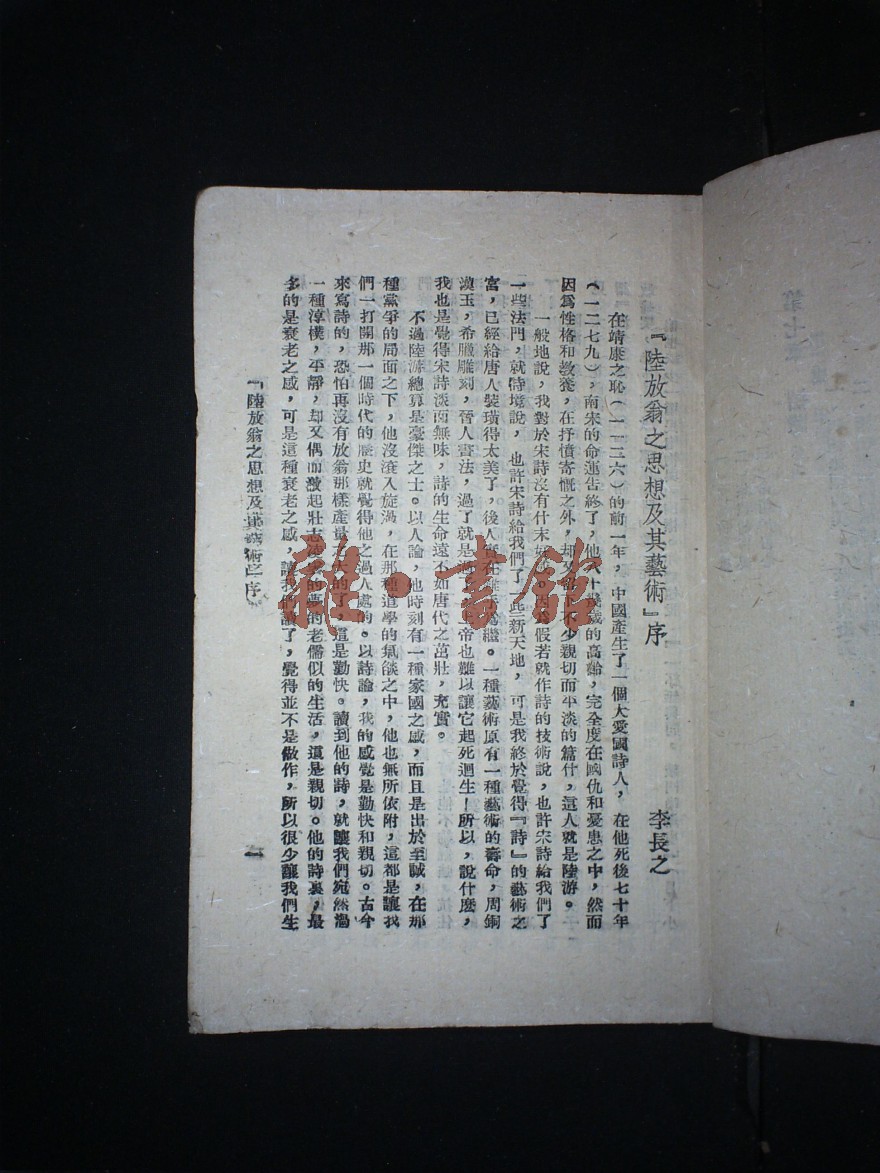 『陸放翁之思想及其藝術』序
李長之
在靖康之恥(一一二六)的前一年,中國產生了一個大愛國詩人,在他死後七十年
(一二七九),南宋的命運告終了,他八十幾歲的高齡,完全度在國仇和憂患之中,然而
因爲性格和敎養,在抒憤寄慨之外,却又 不少親切而平淡的篇什,這人就是陸游。
一般地說,我對於宋詩沒有什末好 假若就作詩的技術說,也許宋詩給我們了
一些法門,就詩境說,也許宋詩給我們了一些新天地,可是我終於覺得『詩』的藝術之
宮,已經給唐人裝璜得太美了,後人 繼。一種藝術原有一種藝術的壽命,周銅
漢玉,希臘雕刻,晉人書法,過了就是 帝也難以讓它起死迴生!所以,說什麽,
我也是覺得宋詩淡而無味,詩的生命遠不如唐代之茁壯,充實。
不過陸游總算是豪傑之士。以人論,他時刻有一種家國之感,而且是出於至誠,在那
種黨爭的局面之下,他沒滾入旋渦,在那種道學的氣燄之中,他也無所依附,這都是讓我
們一打開那一個時代的歷史就覺得他之過人處的。以詩論,我的感覺是勤快和親切。古今
來寫詩的,恐怕再沒有放翁那樣產量 大的了,這是勤快。讀到他的詩,就讓我們宛然湯
一種淳樸,平靜,却又偶而激起壯志凌 的夢的老儒似的生活,這是親切。他的詩裏,最
多的是衰老之感,可是這種衰老之感,讓我們讀了,覺得並不是做作,所以很少讓我們生
『陸放翁之思想及其藝術』序
一
雜·書館